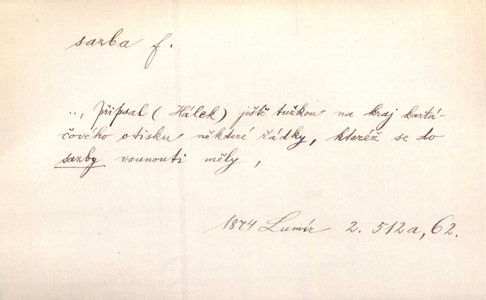 sazba f.
.., připsal (Hálek) ještě tužkou na kraj kartá-
čového otisku některé řádky, kteréž se do
sazby vsunouti měly,
1874 Lumír 2. 512a, 62.